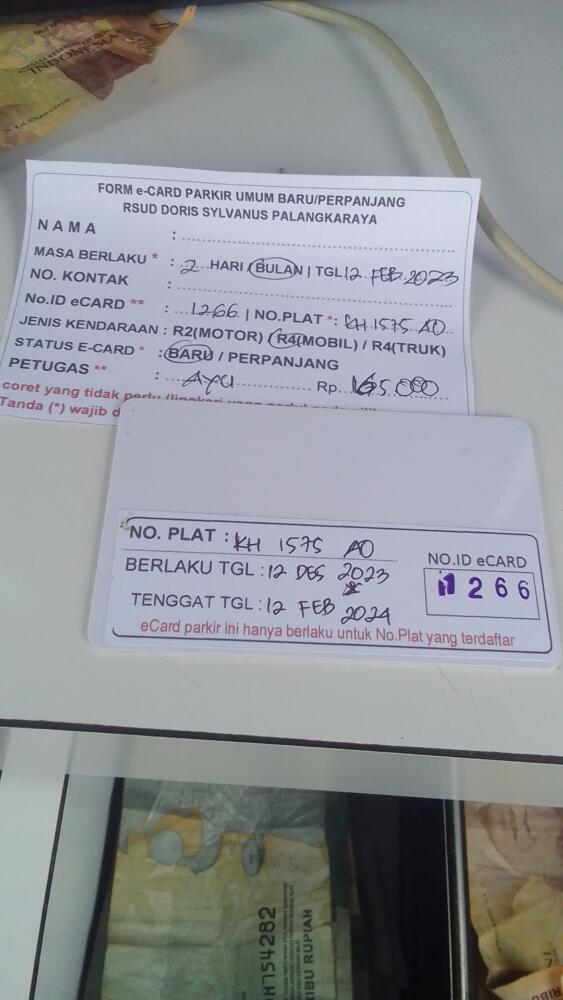 INDONESIA
FORM e-CARD PARKIR UMUM BARU/PERPANJANG
RSUD DORIS SYLVANUS PALANGKARAYA
NAMA :
MASA BERLAKU * : 2 HARI / BULAN | TGL 12 FEB 2023
NO. KONTAK :
No.ID eCARD ** : 1266 | NO.PLAT *: KH 1575 AO
JENIS KENDARAAN : R2(MOTOR) / R4(MOBIL) / R4(TRUK)
STATUS E-CARD * : BARU / PERPANJANG
PETUGAS ** : Ayu Rp. 165.000
coret yang tidak perlu
Tanda (*) wajib
NO. PLAT : KH 1575 AO
BERLAKU TGL : 12 DES 2023
TENGGAT TGL : 12 FEB 2024
NO.ID eCARD
1266
eCard parkir ini hanya berlaku untuk No.Plat yang terdaftar
H754282
RIBU RUPIAH